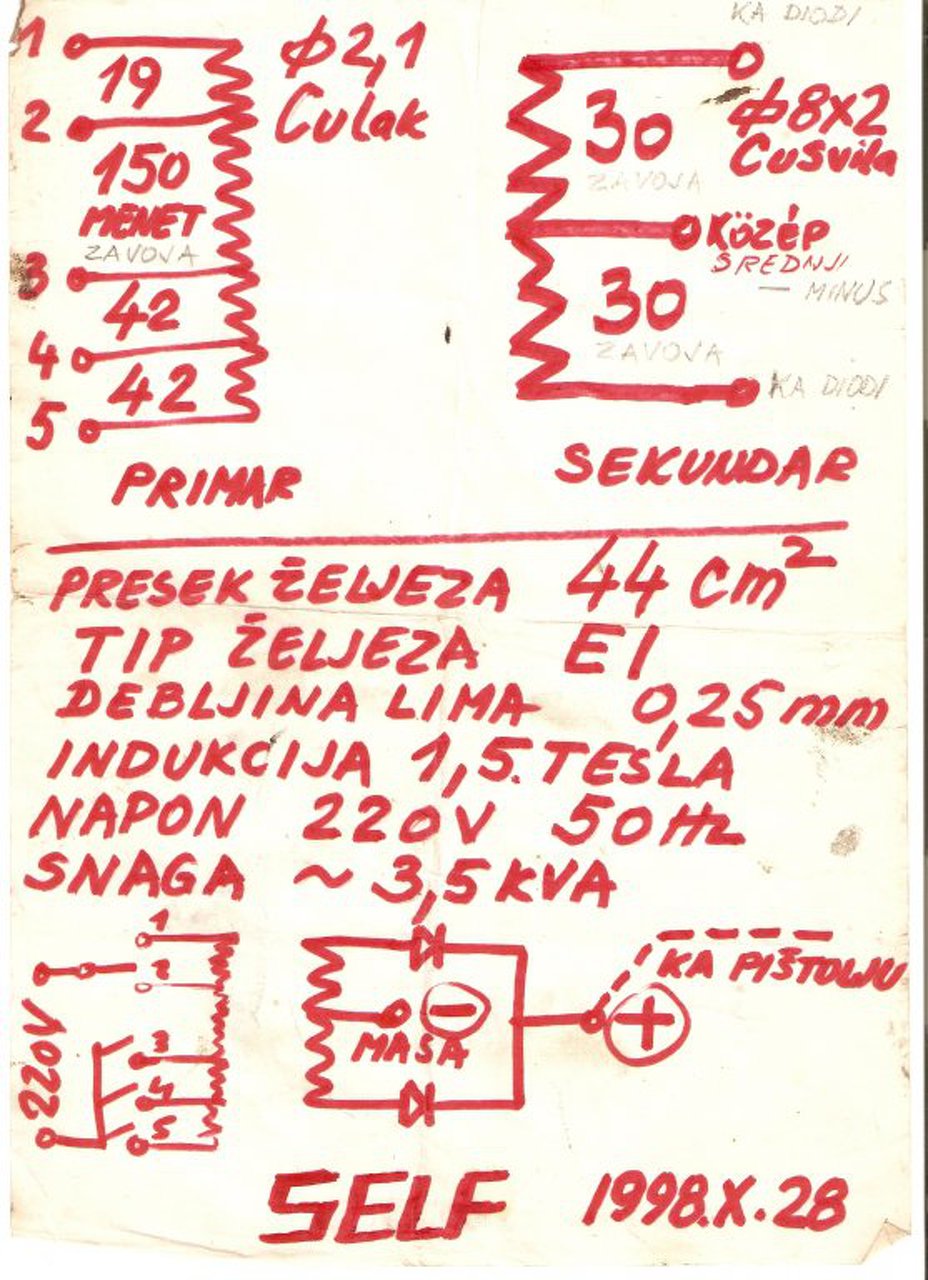 KA DIODI
1
19
2
150
MENET
ZAVOJA
3
42
4
42
5
PRIMAR
ϕ2,1
Culak
30
ZAVOJA
ϕ8x2
Cusvila
KÖZÉP
SREDNJI
— MINUS
30
ZAVOJA
KA DIODI
SEKUNDAR
PRESEK ŽELJEZA 44 cm²
TIP ŽELJEZA EI
DEBLJINA LIMA 0,25 mm
INDUKCIJA 1,5 TESLA
NAPON 220V 50Hz
SNAGA ~ 3,5 KVA
220V
1
2
3
4
5
MASA
−
+
KA PIŠTOLJU
SELF 1998.X.28